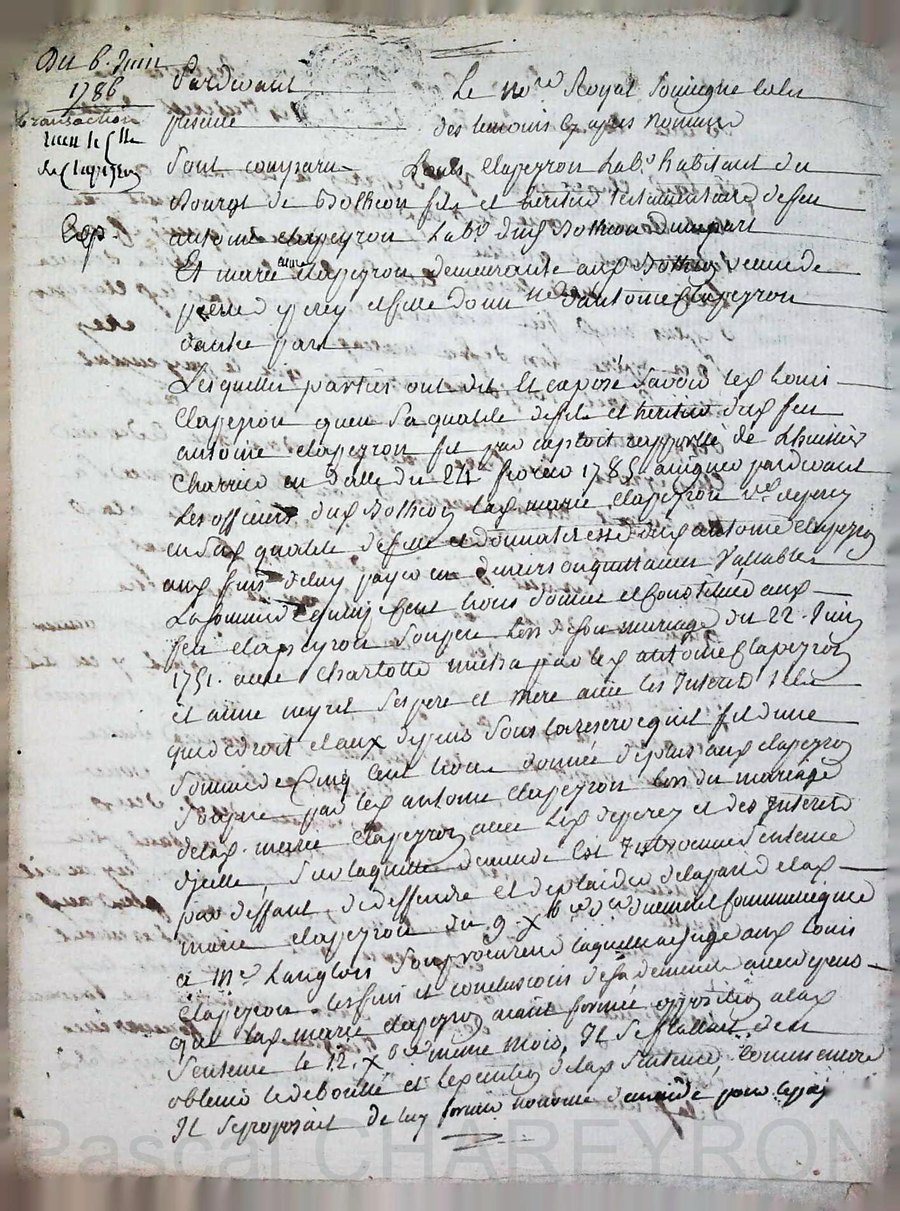 Du 6. Juin
1786
transaction
entre les Clla
de Clapeyron
Exp.
Pardevant Le no.re Royal soussigné
present des temoins cy apres nommés
sont comparu Louis Clapeyron Lab.r habitant du
Bourg de Bothéon fils et heritier testamentaire de feu
antoine clapeyron Lab.r dud Bothéon d'une part
Et marie anne clapeyron demeurante aud Bothéon veuve de
pierre et fille donn.re d'antoine Clapeyron
d'autre part
Lesquelles parties ont dit Et exposé savoir led Louis
Clapeyron qu'en sa qualité de fils et heritier dud feu
antoine clapeyron fit par exploit rapporté de L'huissier
Charrier en datte du 24 1785 assigner pardevant
Les officiers dud Bothéon lad marie clapeyron v.e
en sad qualité de fille et donnataire dud antoine clapeyron
aux fins de luy payer en deniers ou quittances vallables
La somme de cent livres donnée et constituée aud
feu clapeyron son pere Lors de son mariage du 22. Juin
1751. avec Charlotte par led antoine Clapeyron
et anne neyret ses pere et mere avec les Interets
que de droit et aux depens sous la reserve qu'il fit d'une
somme de Cinq cent livres donnée de plus aud clapeyron
son pere par led antoine clapeyron lors du mariage
de lad. marie clapeyron avec led et des Interets
d'icelle, sur laquelle demande Est Intervenue sentence
par deffaut de deffendre et de plaider de la part de lad
marie clapeyron du 9. Xbre d.er duement Communiquée
a M.e Langlois son procureur laquelle adjuge aud Louis
Clapeyron les fins et conclusions de sa demande avec depens
que lad marie clapeyron avait formée opposition a lad
sentence le 12. Xbre meme mois, Il de
obtenir le debouté et de lad sentence, comme encore
Il se proposait de luy former nouvelle demande pour
Pascal CHAREYRON